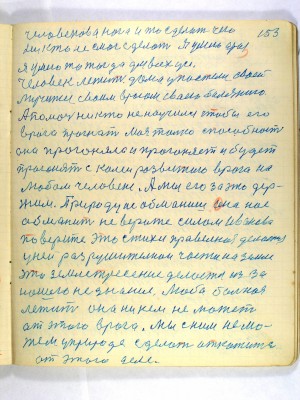 человекова нога и то сделит чего
бы кто не смог сделать Я умно
я умно то тогда для всех
Человек лежит дома у постели своей
мучится своим врагом своею болезнью
А помочь никто не научился чтобы его
врага прогнать Моя только способность
она прогоняла и прогоняет и будет
прогонять с колеи развитого врага на
любом человеке. А мы его за это дер-
жим. Природу не обманиш она нас
обманит не верите силам Иванова
поверите Это стихи правильно делают
у ней разрушительной части на земле
это землетресение делается из за
нашего не знания. Люба больная
лежит она ни кем не может
от этого врага. Мы с ним не мо-
жем у природе сделать отказатся
от этого дела.
153